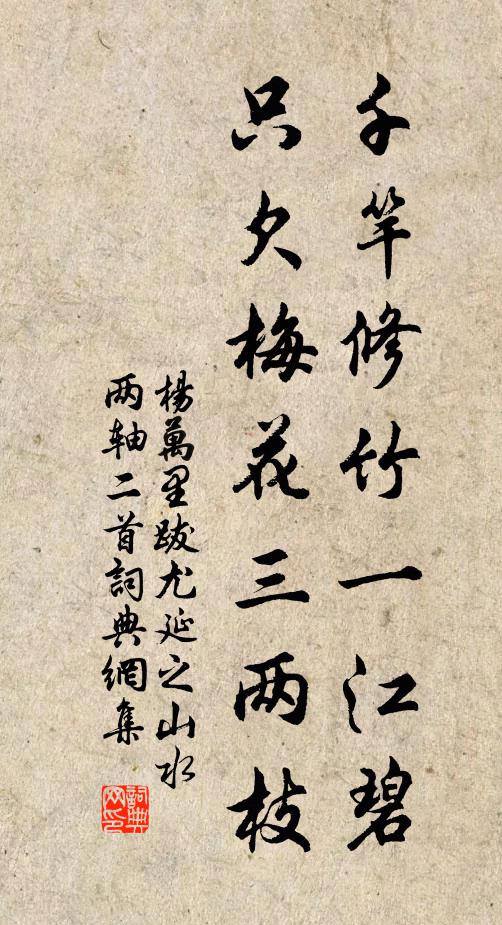 千竿修竹一江碧
只欠梅花三两枝
楊萬里跋尤延之山水
两轴二首詞典網集
詞典网印